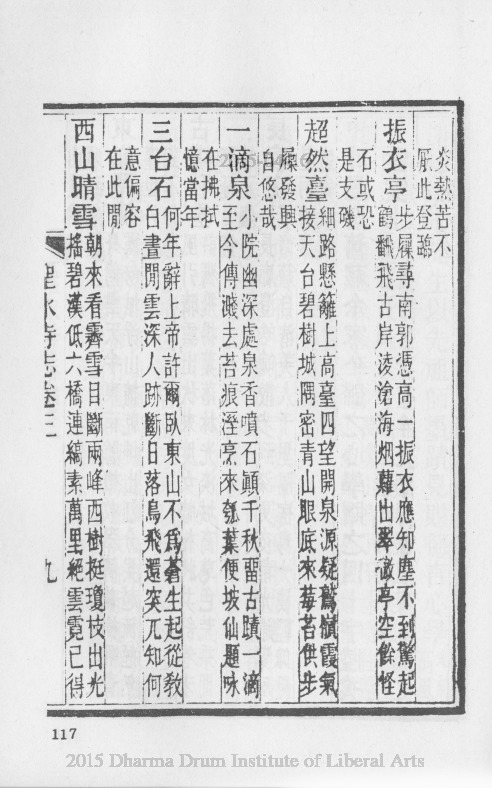 炎熱苦不
厭此登躋
振衣亭
步屧尋南郭憑高一振衣應知塵不到驚起
鶴飜飛古岸淩滄海烟蘿出翠微亭空餘怪
石或恐
是支磯
超然臺
細路懸籬上高臺四望開泉源疑鷲嶺霞氣
接天台碧樹城隅密青山眼底來莓苔供步
屧發興
自悠哉
一滴泉
小院幽深處泉香噴石顛千秋畱古蹟一滴
至今傳濺去苔痕溼烹來瓠葉便坡仙題咏
在拂拭
憶當年
三台石
何年辭上帝許爾臥東山不爲蒼生起從敎
白晝閒雲深人跡斷日落鳥飛還突兀知何
意偏容
在此閒
西山晴雪
朝來看霽雪目斷兩峰西樹挺瓊枝出光
搖碧漢低六橋連縞素萬里絕雲霓已得
聖水寺志卷三
九
117
2015 Dharma Drum Institute of Liberal Arts